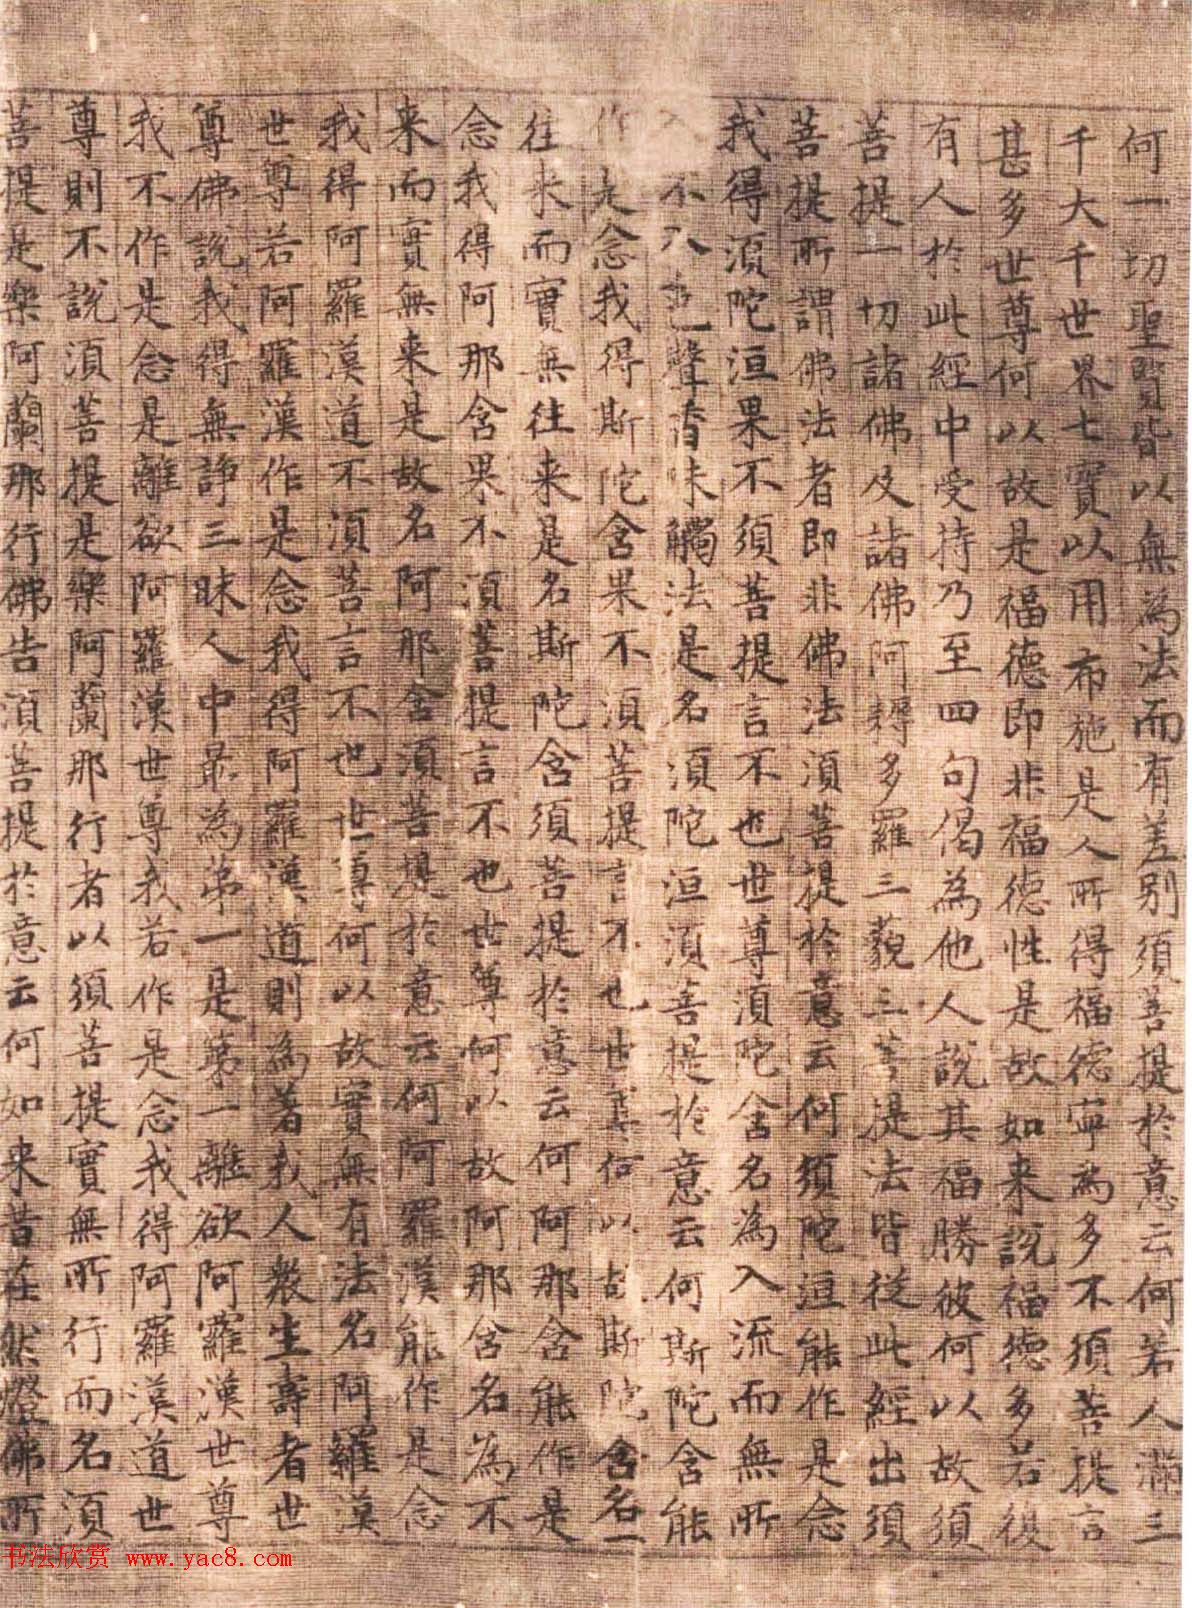 何一切聖賢皆以無為法而有差別須菩提於意云何若人滿三
千大千世界七寶以用布施是人所得福德寧為多不須菩提言
甚多世尊何以故是福德即非福德性是故如来說福德多若復
有人於此經中受持乃至四句偈為他人說其福勝彼何以故須
菩提一切諸佛及諸佛阿耨多羅三藐三菩提法皆從此經出須
菩提所謂佛法者即非佛法須菩提於意云何須陀洹能作是念
我得須陀洹果不須菩提言不也世尊須陀洹名為入流而無所
入不入色聲香味觸法是名須陀洹須菩提於意云何斯陀含能
作是念我得斯陀含果不須菩提言不也世尊何以故斯陀含名一
往来而實無往来是名斯陀含須菩提於意云何阿那含能作是
念我得阿那含果不須菩提言不也世尊何以故阿那含名為不
来而實無来是故名阿那含須菩提於意云何阿羅漢能作是念
我得阿羅漢道不須菩言不也世尊何以故實無有法名阿羅漢
世尊若阿羅漢作是念我得阿羅漢道則為著我人衆生壽者世
尊佛說我得無諍三昧人中最為第一是第一離欲阿羅漢世尊
我不作是念是離欲阿羅漢世尊我若作是念我得阿羅漢道世
尊則不說須菩提是樂阿蘭那行者以須菩提實無所行而名須
菩提是樂阿蘭那行佛告須菩提於意云何如来昔在然燈佛所
书法欣赏 www.yac8.com